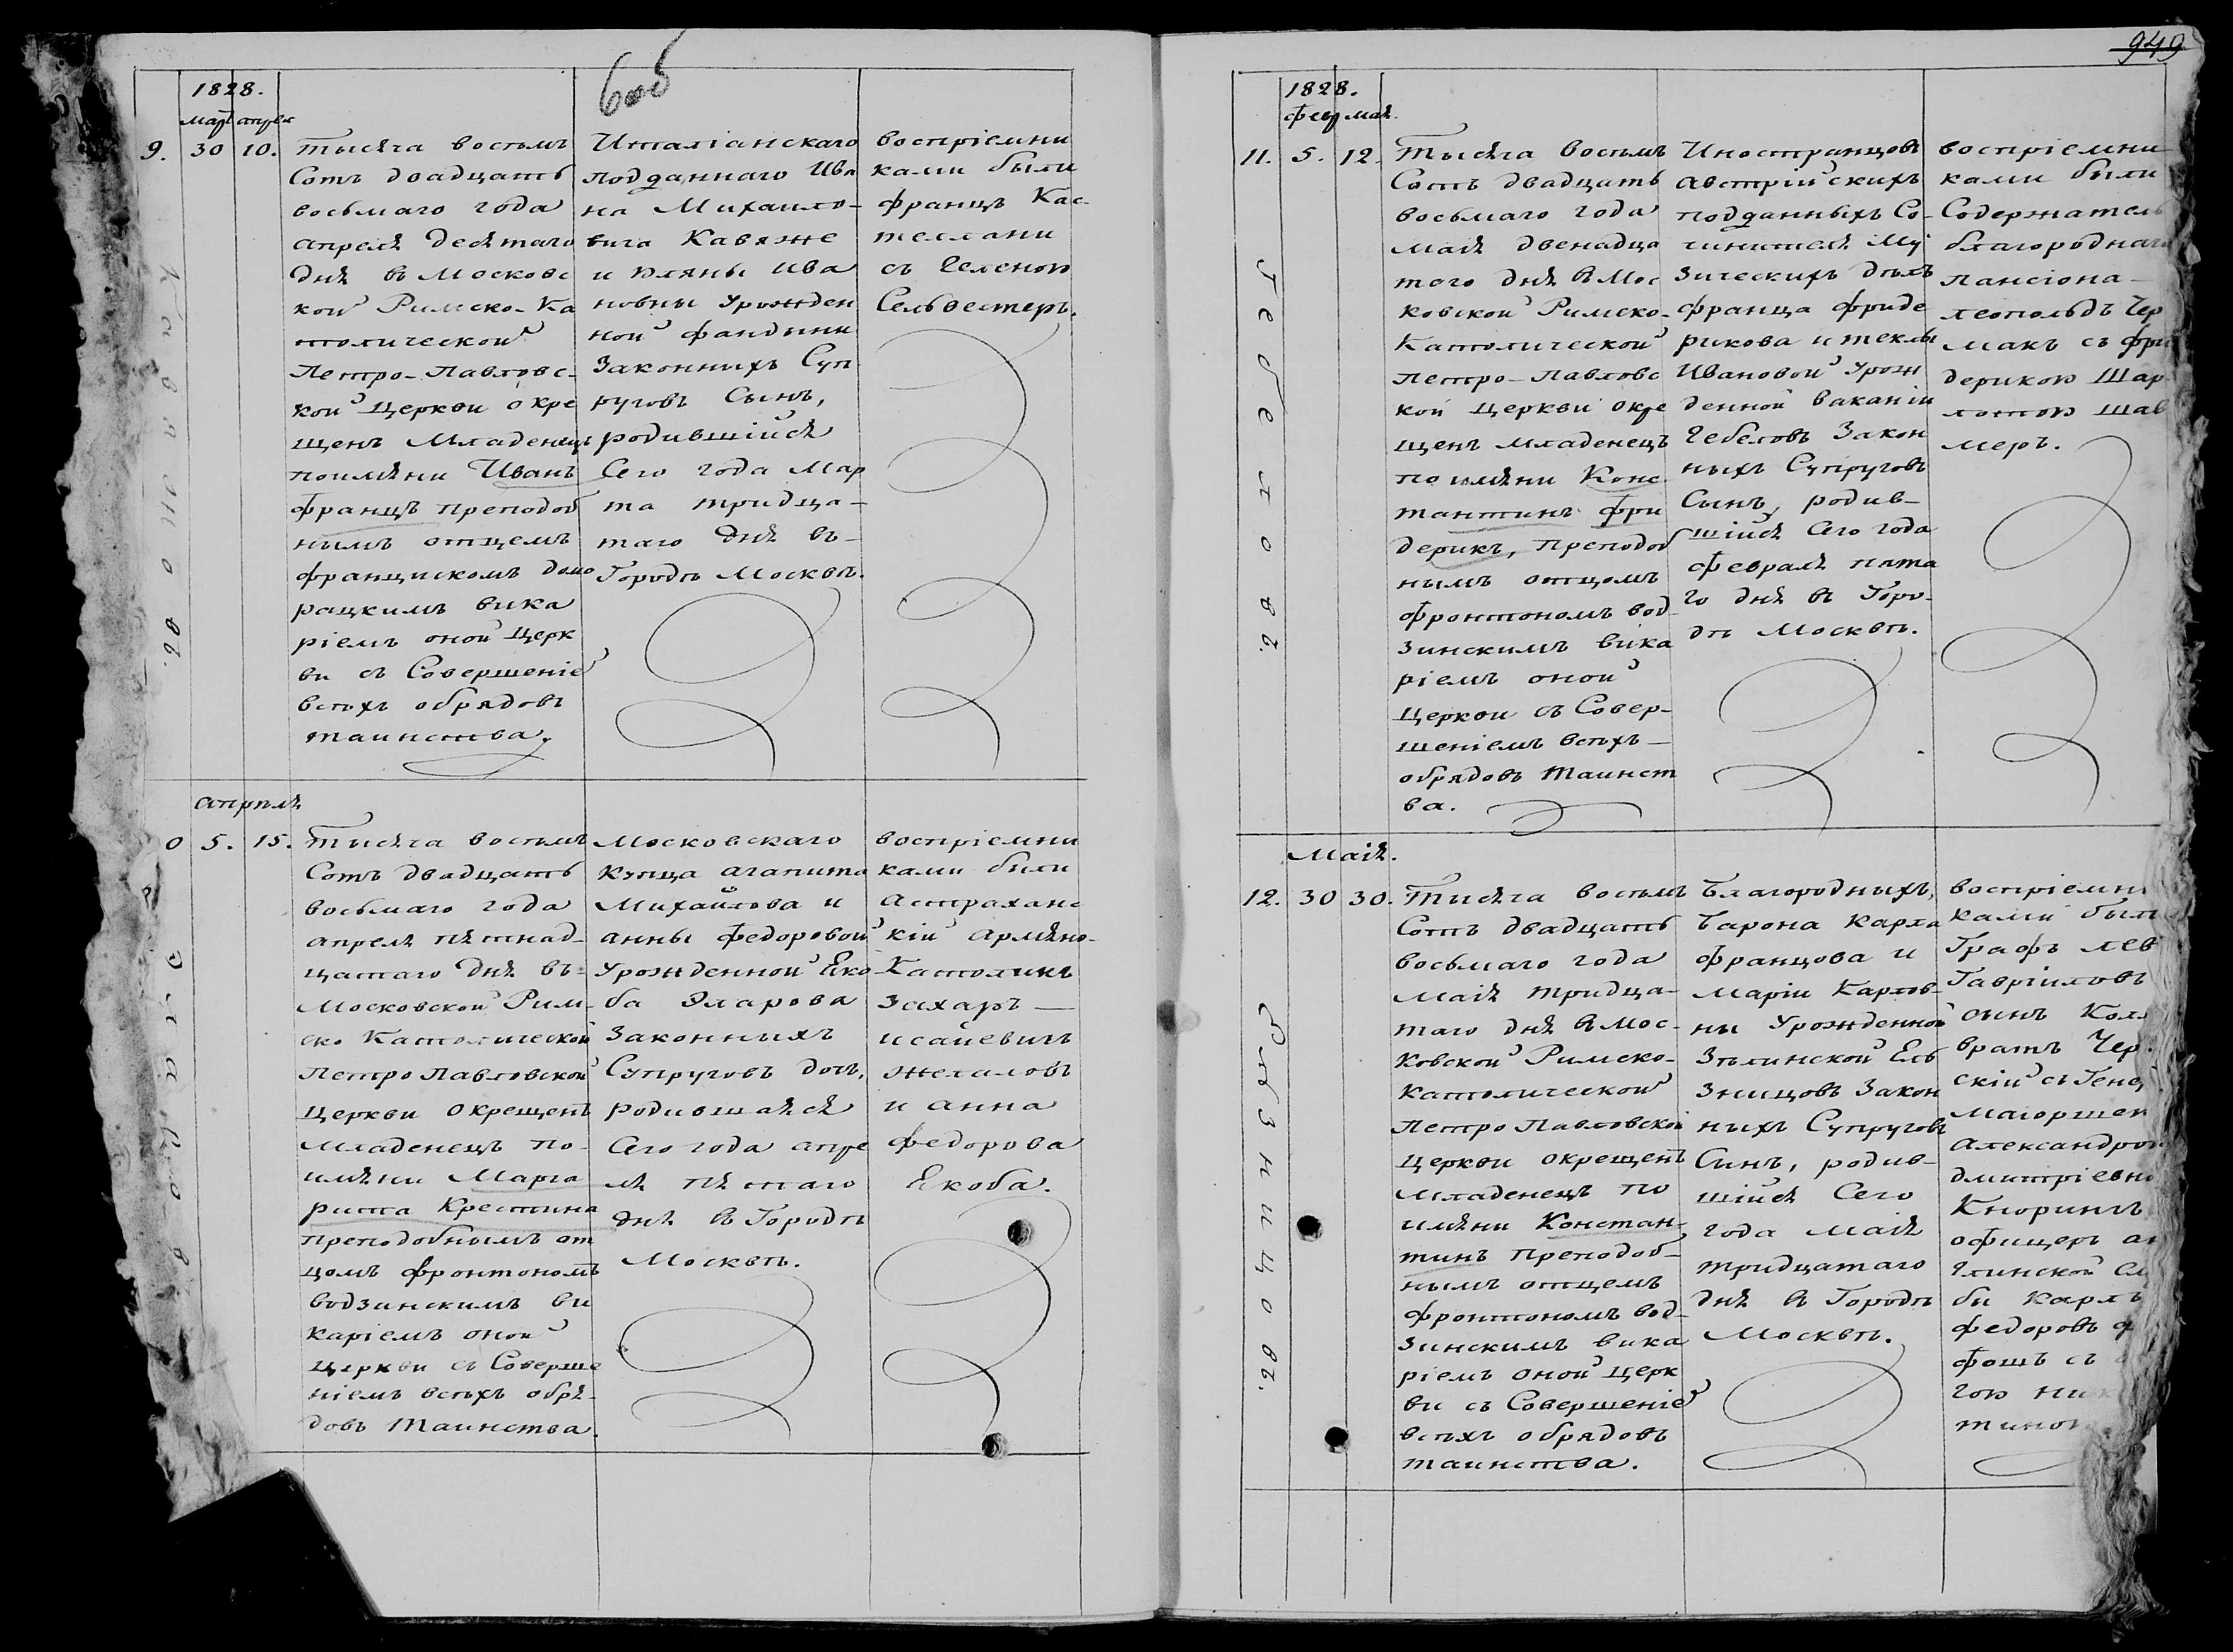 1828.
606
мар апрел
9. 30 10.
Тысяча восемь
Сотъ двадцать
восьмаго года
апреля десятаго
дня въ Московс
кой Римско-Ка
толической
Петро-Павловс-
кой Церкви окре
щенъ Младенецъ
поимяни Иванъ
Францъ преподоб
нымъ отцемъ
Францискомъ
рацкимъ вика
ріемъ оной Церк
ви съ Совершеніе
всѣхъ обрядовъ
таинства.
Италіанскаго
подданнаго Ива
на Михаило-
вича Кавяже
и Ива
новны Урожден
ной Фандини
Законныхъ Суп
руговъ Сынъ,
родившійся
Сего года Мар
та тридца-
таго дня въ-
Городѣ Москвѣ.
воспріемни
ками были
Францъ Кас-
теллани
съ Еленою
Сельвестеръ.
апрѣля
0 5. 15.
Тысяча восемь
Сотъ двадцать
восьмаго года
апреля пятнад-
цатаго дня въ-
Московской Рим-
ско Католической
Петро Павловской
Церкви окрещенъ
младенецъ по-
имяни Марга
рита Крестина
преподобнымъ от
цомъ Фронтономъ
Водзинскимъ ви
каріемъ оной
Церкви съ Соверше
ніемъ всѣхъ обря-
довъ Таинства.
Московскаго
Купца агапита
Михайлова и
анны Федоровой
Урожденной Еко
ба Эларова
Законныхъ
Супруговъ дочь,
родившаяся
Сего года апре
ля пятаго
дня въ Городѣ
Москвѣ.
воспріемни
ками были
Астраханс
кій Армяно-
Католикъ
Захаръ
исаевичъ
Жехаловъ
и анна
Федорова
Екоба.
949
1828.
Февр мая.
11. 5. 12.
Гебеловъ.
Тысяча восемь
Сотъ двадцать
восьмаго года
Маія двенадца
того дня въ Мос
ковской Римско-
Католической
Петро-Павловс
кой Церкви окре
щенъ младенецъ
по имяни Конс
тантинъ Фри
дерикъ, преподоб
нымъ отцомъ
Фронтономъ Вод
зинскимъ вика
ріемъ оной
Церкви съ Совер-
шеніемъ всѣхъ
обрядовъ Таинст
ва.
Иностранцовъ
австрійскихъ
подданныхъ Со-
чинителя Му
зическихъ дѣлъ
Франца Фриде
рикова и Теклы
Ивановой Урож
денной Ваканіи
Гебеловъ Закон
ныхъ Супруговъ
Сынъ, родив-
шійся Сего года
Февраля пята
го дня въ Горо-
дѣ Москвѣ.
воспріемни
ками были
Содержатель
благороднаго
пансіона
леопольдъ Чер
макъ съ Фри
дерикою Шар
лотою Шав
меръ.
Маія.
12. 30 30.
Ельзницовъ.
Тысяча восемь
Сотъ двадцать
восьмаго года
Маія тридца-
таго дня въ Мос-
ковской Римско-
католической
Петро Павловской
Церкви окрещенъ
Младенецъ по
имяни Констан-
тинъ преподоб-
нымъ отцемъ
Фронтономъ Вод-
зинскимъ вика
ріемъ оной Церк
ви съ Совершеніе
всѣхъ обрядовъ
таинства.
Благородныхъ,
Барона Карла
Францова и
Маріи Карлов-
ны Урожденной
Зѣлинской Ель
зницовъ Закон
ныхъ Супруговъ
Сынъ, родив-
шійся Сего
года Маія
тридцатаго
дня въ Городѣ
Москвѣ.
воспріемни
ками был
Графъ лев
Гавріиловъ
сынъ
братъ Чер
скій съ Гене
Маіоршею
Александрою
дмитріевно
Кнорингъ
офицеръ ан
глинской Слу
бы Карлъ
Федоровъ ф
фошъ съ
гою
тиною